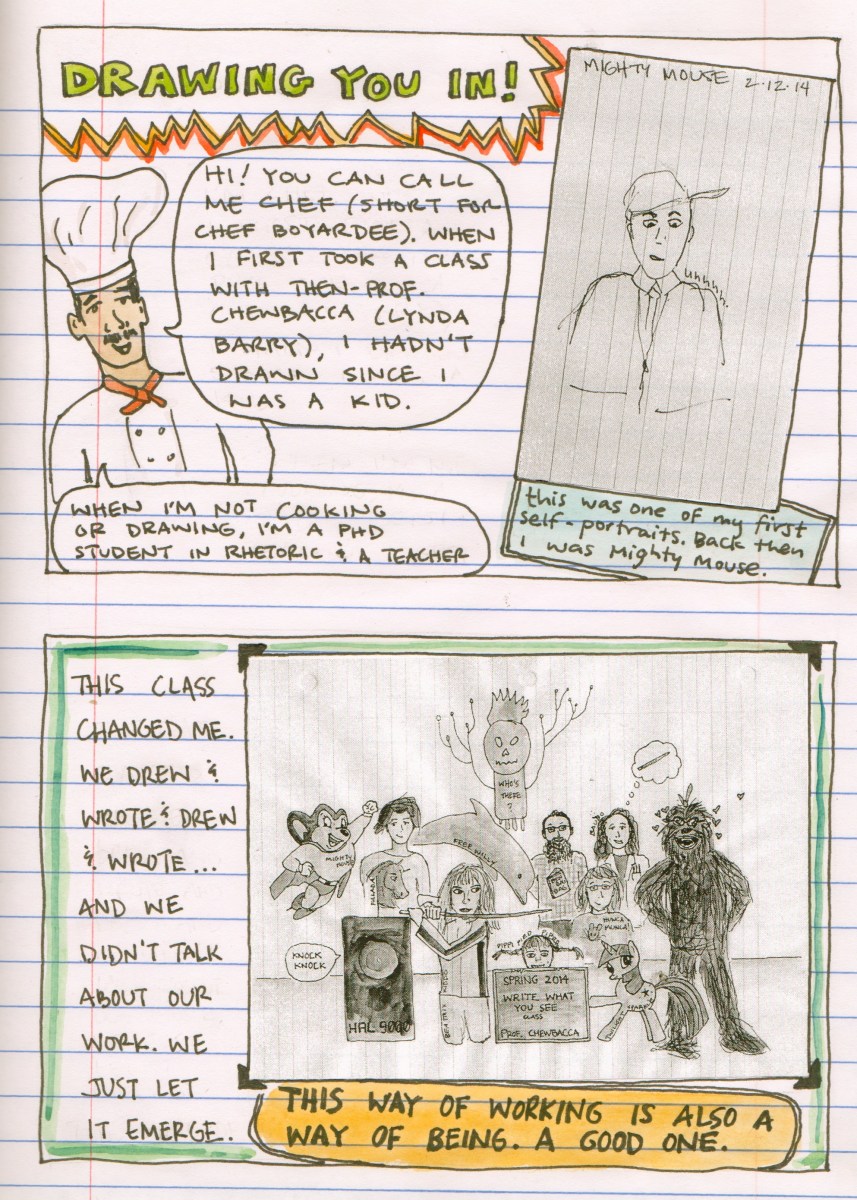 DRAWING YOU IN!
HI! YOU CAN CALL
ME CHEF (SHORT FOR
CHEF BOYARDEE). WHEN
I FIRST TOOK A CLASS
WITH THEN-PROF.
CHEWBACCA (LYNDA
BARRY), I HADN'T
DRAWN SINCE I
WAS A KID.
WHEN I'M NOT COOKING
OR DRAWING, I'M A PHD
STUDENT IN RHETORIC & A TEACHER
MIGHTY MOUSE 2.12.14
uhhhh.
this was one of my first
self-portraits. Back then
I was Mighty Mouse.
THIS CLASS
CHANGED ME.
WE DREW &
WROTE & DREW
& WROTE ...
AND WE
DIDN'T TALK
ABOUT OUR
WORK. WE
JUST LET
IT EMERGE.
WHO'S
THERE
?
MIGHTY
MOUSE
FREE WILLY
HUNCA
MUNCA!
KNOCK
KNOCK
HAL 9000
SPRING 2014
WRITE WHAT
YOU SEE
CLASS
PROF. CHEWBACCA
THIS WAY OF WORKING IS ALSO A
WAY OF BEING. A GOOD ONE.